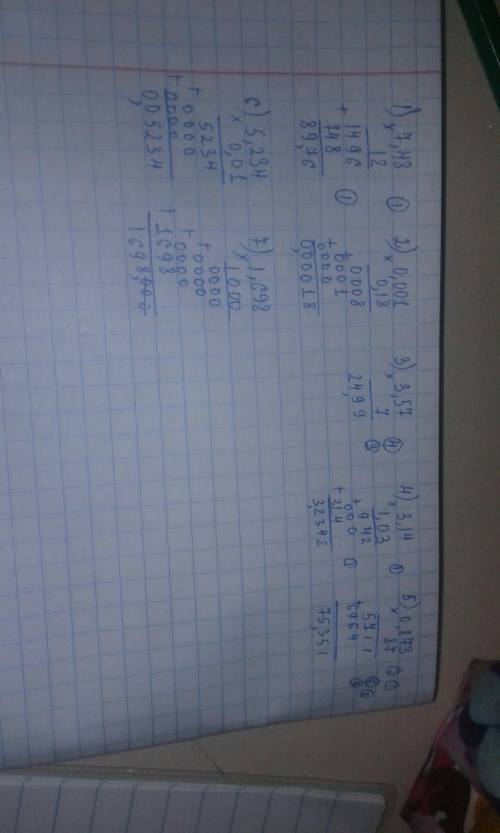 1) 7,48 ①
× 12
1496
+ 748 ①
89,76
2) 0,001
× 0,18
0008
+ 0001
+ 0000
0,00018
3) 3,57 ④
× 7
24,99 ②
4) 3,14 ①
× 1,03
942
+ 000 ①
+ 314
3,2342
5) 0,873 ②②
× 87
6111
+ 6964
75,951
6) 5,234
× 0,01
5234
+ 0000
+ 0000
0,05234
7) 1,698
× 1,000
0000
+ 0000
+ 0000
+ 1698
1,698000